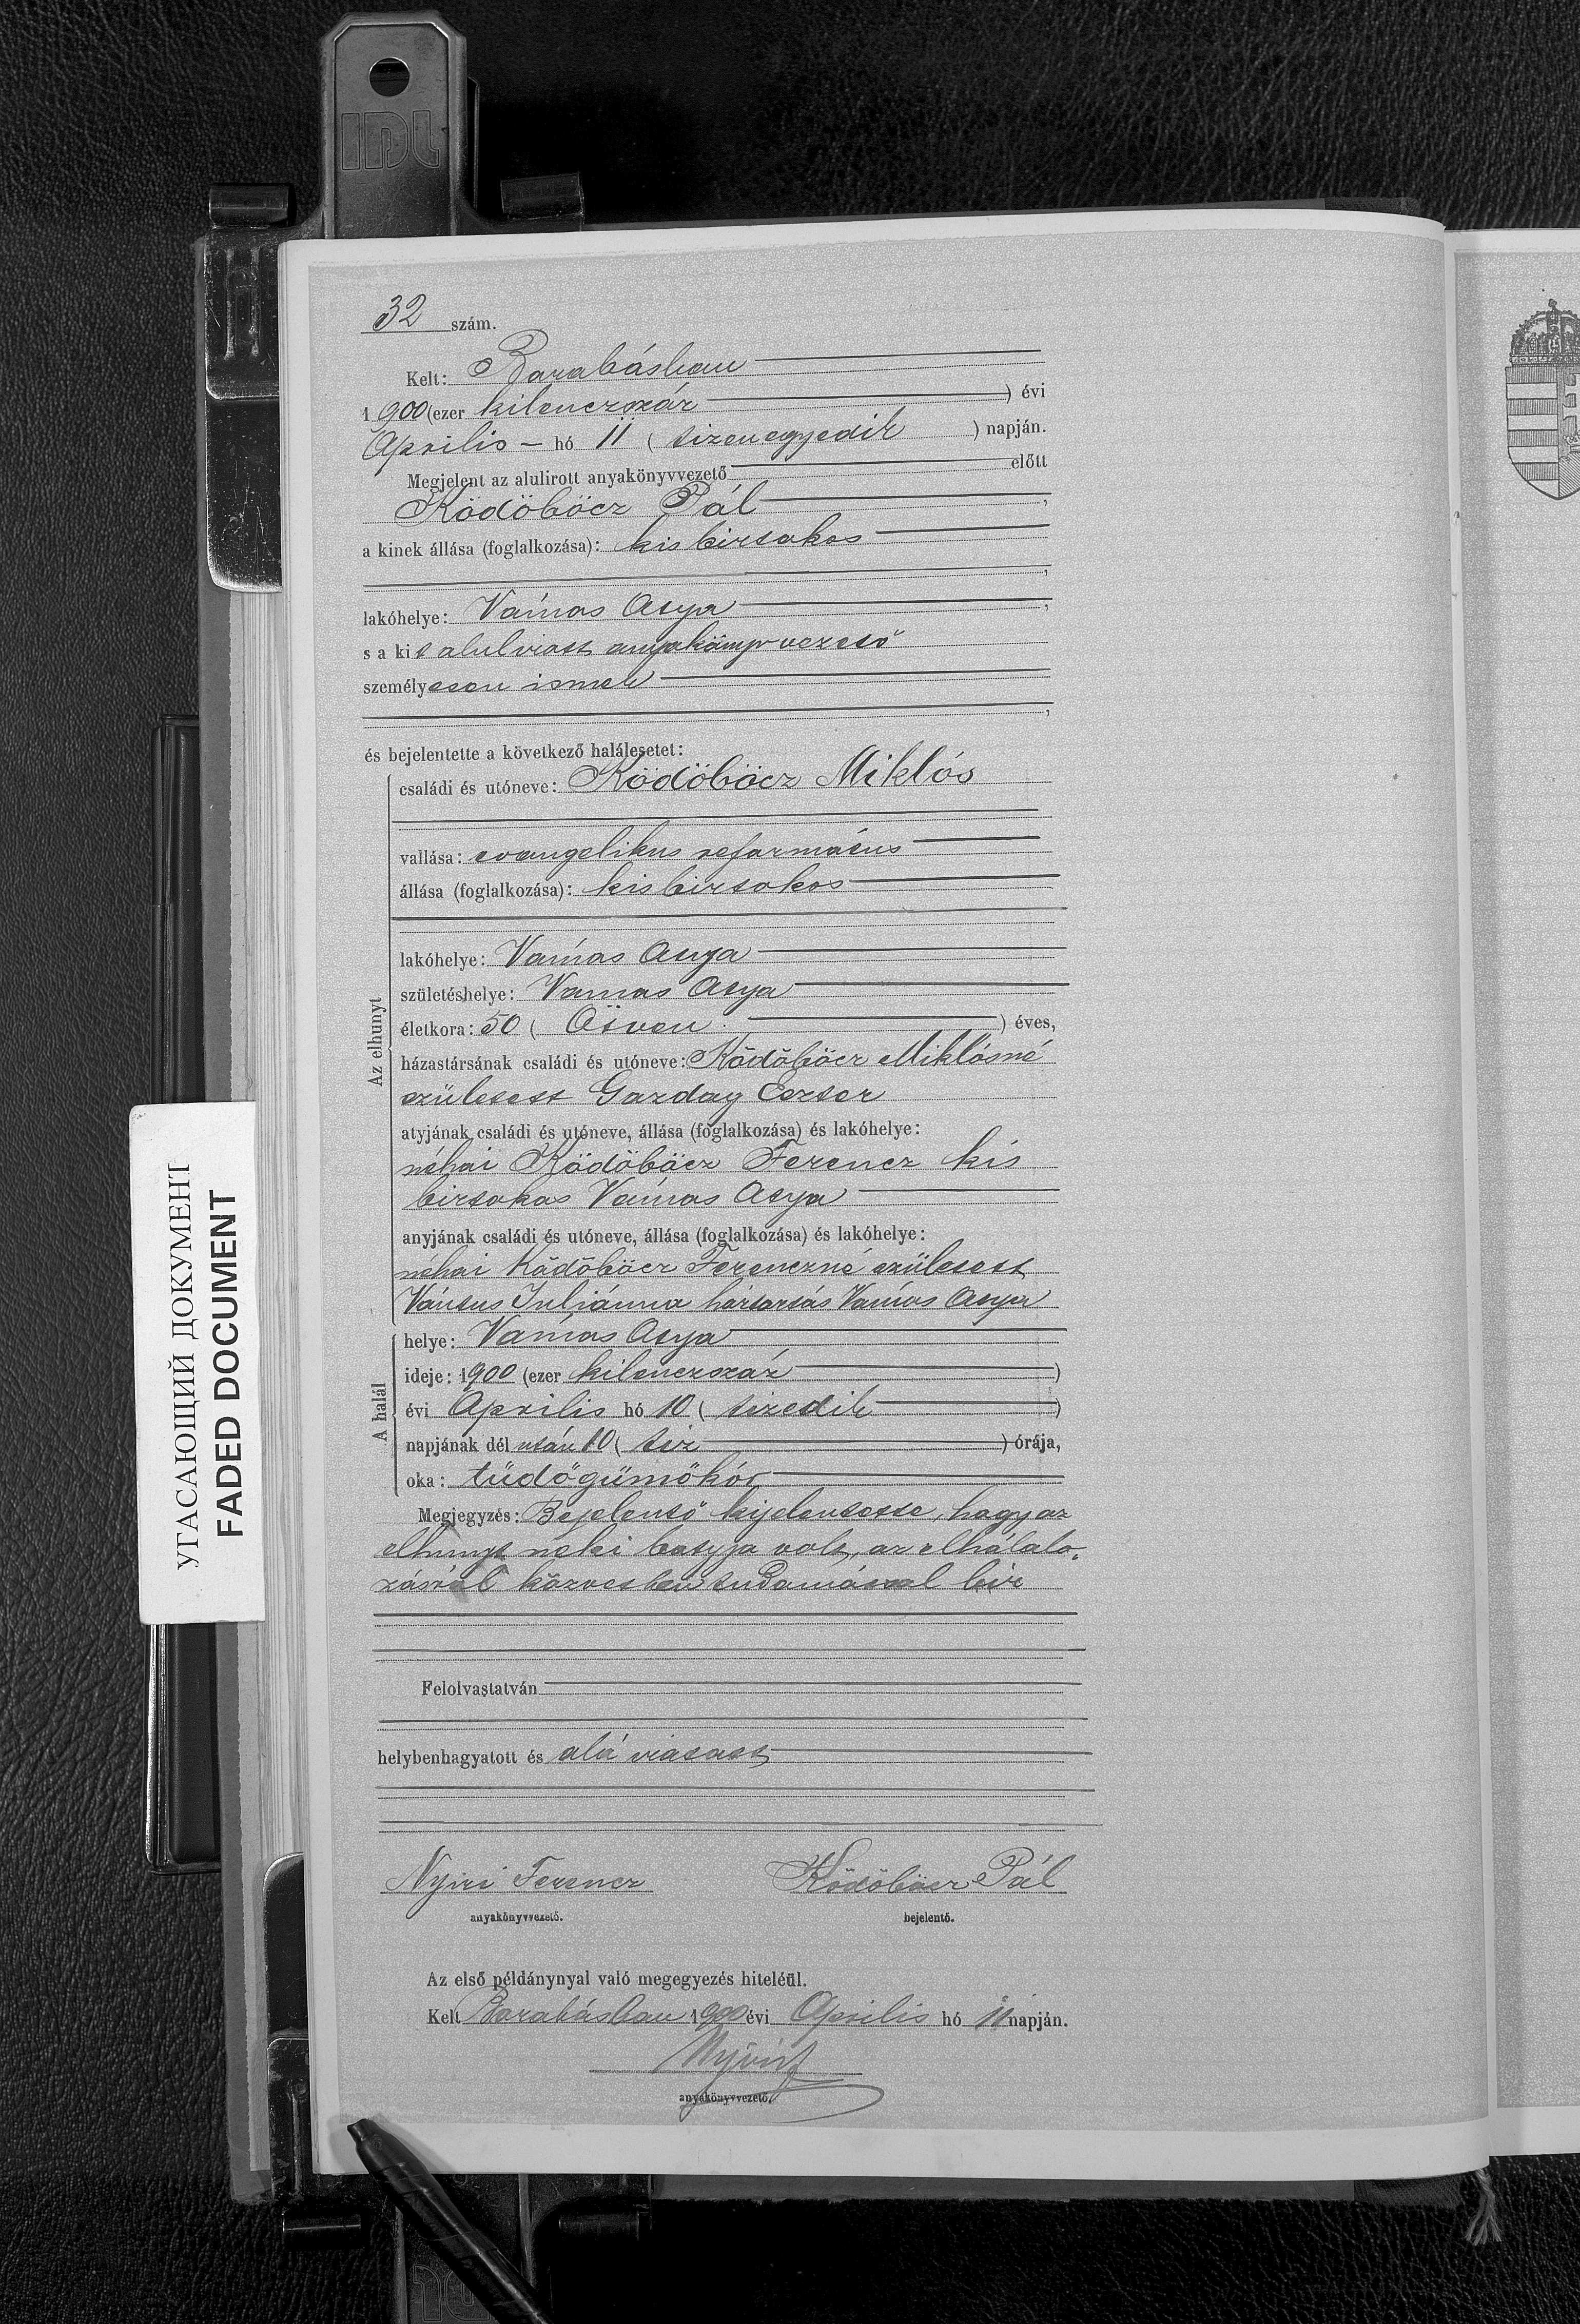 IDL
32 szám.
Kelt: Barabásban
1900 (ezer kilenczszáz ) évi
Április – hó 11 ( tizenegyedik ) napján.
Megjelent az alulirott anyakönyvvezető előtt
Ködöböcz Pál ,
a kinek állása (foglalkozása): kis birtokos
,
lakóhelye: Vámos Atya ,
s a kit alulirott anyakönyvvezető
személyesen ismer
,
és bejelentette a következő halálesetet:
Az elhunyt
családi és utóneve: Ködöböcz Miklós
vallása: evangelikus református
állása (foglalkozása): kis birtokos
lakóhelye: Vámos Atya
születéshelye: Vamos Atya
életkora: 50 ( Ötven ) éves,
házastársának családi és utóneve: Ködöböcz Miklósné
született Gazdag Eszter
atyjának családi és utóneve, állása (foglalkozása) és lakóhelye:
néhai Ködöböcz Ferencz kis
birtokos Vámos Atya
anyjának családi és utóneve, állása (foglalkozása) és lakóhelye:
néhai Ködöböcz Ferenczné született
Vántus Juliánna háztartás Vámos Atya
A halál
helye: Vámos Atya
ideje: 1900 (ezer kilenczszáz )
évi Április hó 10 ( tizedik )
napjának dél után 10 ( tiz ) órája,
oka: tüdőgümőkór
Megjegyzés: Bejelentő kijelentette, hogy az
elhunyt neki batyja volt, az elhálalo-
zásról közvetlen tudomással bir
Felolvastatván
helybenhagyatott és alá iratott
Nyiri Ferencz Ködöböcz Pál
anyakönyvvezető. bejelentő.
Az első példánynyal való megegyezés hiteléül.
Kelt Barabásban 1900 évi Április hó 11 napján.
Nyiri F
anyakönyvvezető.
УГАСАЮЩИЙ ДОКУМЕНТ
FADED DOCUMENT